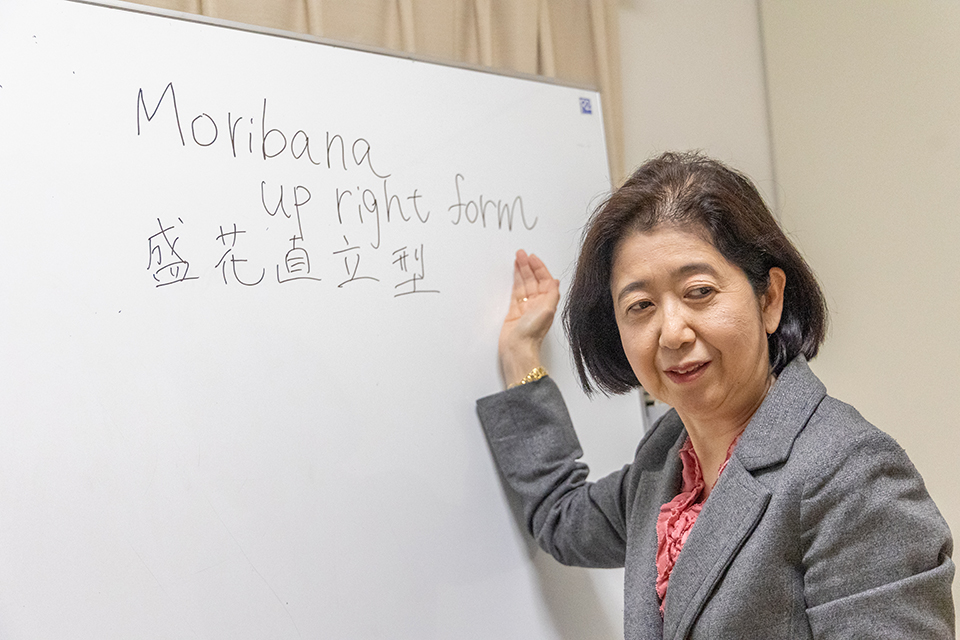 Moribana
up right form
盛花直立型